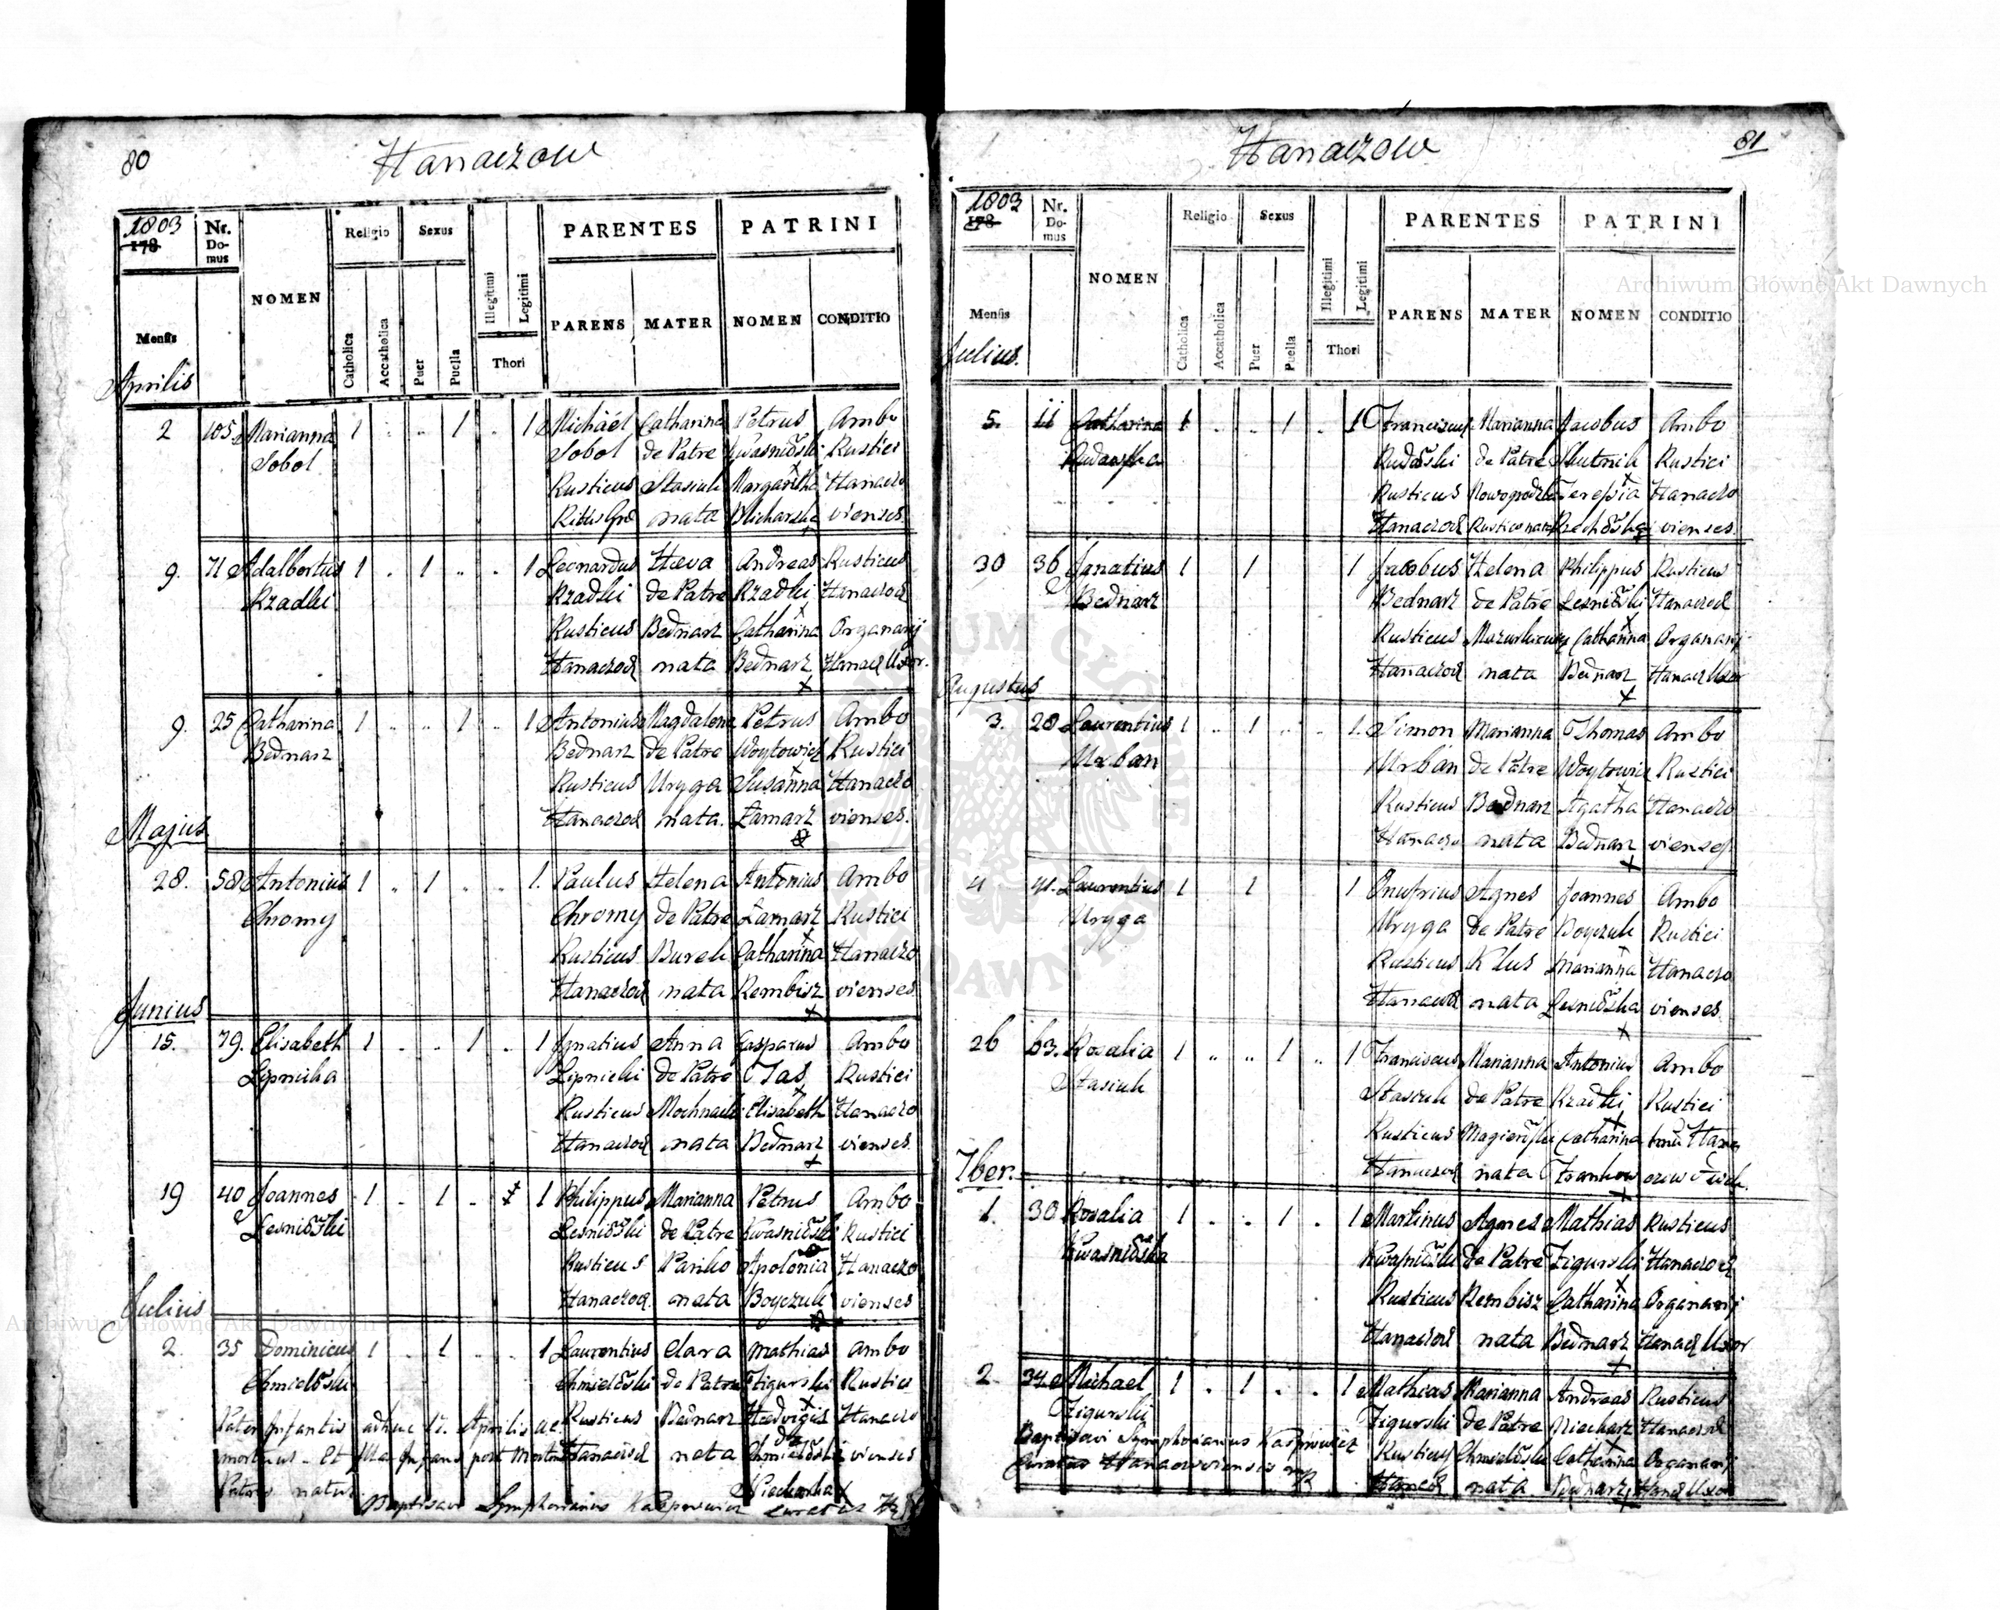 80
Hanaczow
1803
178
Nr. Domus
NOMEN
Religio
Sexus
Illegitimi
Legitimi
PARENTES
PATRINI
Mensis
Catholica
Accatholica
Puer
Puella
Thori
PARENS
MATER
NOMEN
CONDITIO
Aprilis
2 105 Marianna 1 .. .. 1 .. 1 Michael Catharina Petrus Ambo
Sobol Sobol de Patre Rustici
Rusticus Stasiuk Margaritha Hanaczo
nata vienses
9. 71 Adalbertus 1 .. 1 .. . 1 Leonardus Haeva Andreas Rusticus
Rzadki Rzadki de Patre Rzadki Hanaczod
Rusticus Bednarz Catharina Organarij
Hanaczod nata Bednarz Hanacz Uxor.
9. 25 Catharina 1 .. .. 1 .. 1 Antonius Magdalena Petrus Ambo
Bednarz Bednarz de Patre Woytowicz Rustici
Rusticus Uryga Susanna Hanaczo
Hanaczod nata. Lamarz vienses.
Majus
28. 58 Antonius 1 .. 1 .. .. 1. Paulus Helena Antonius Ambo
Chromy Chromy de Patre Lamarz Rustici
Rusticus Burek Catharina Hanaczo
Hanaczod nata Rembisz vienses
Junius
15. 79. Elisabeth 1 .. .. 1 .. 1 Ignatius Anna Casparus Ambo
Lipnicka Lipnicki de Patre Tas Rustici
Rusticus Mochnack Elisabeth Hanaczo
Hanaczod nata Bednarz vienses
19 40 Joannes 1 .. 1 .. 1 Philippus Marianna Petrus Ambo
Lesniõski Lesniõski de Patre Kwasniõski Rustici
Rusticus Panko Apolonia Hanaczo
Hanaczod. nata Boyczuk vienses
Julius
2. 35 Dominicus 1 .. 1 .. .. 1 Laurentius Clara Mathias Ambo
Chmielõski Chmielõski de Patre Zigurski Rustici
Pater Infantis adhuc Aprilis Rusticus Bednarz Hedvigis Hanaczo
mortuus. Et Infans post Mortem Hanaczod nata Chmielõski vienses
Patris natus
Baptisavi Symphorianus Kasprowicz
81
Hanaczow
1803
178
Nr. Domus
NOMEN
Religio
Sexus
Illegitimi
Legitimi
PARENTES
PATRINI
Mensis
Catholica
Accatholica
Puer
Puella
Thori
PARENS
MATER
NOMEN
CONDITIO
Julius.
5. 11 Catharina 1 .. .. 1 .. 1 Franciscus Marianna Jacobus Ambo
Rudõski de Patre Rustici
Rusticus Teressia Hanaczo
Hanaczod vienses.
30 36 Ignatius 1 1 1 Jacobus Helena Philippus Rusticus
Bednarz Bednarz de Patre Lesniõski Hanaczod
Rusticus Catharina Organarij
Hanaczod nata Bednarz Hanacz Uxor
Augustus
3. 28 Laurentius 1 .. 1 .. .. 1. Simon Marianna Thomas Ambo
Urban Urban de Patre Woytowicz Rustici
Rusticus Bednarz Agatha Hanaczo
Hanaczo nata Bednarz vienses
4 41. Laurentius 1 1 1 Onufrius Agnes Joannes Ambo
Uryga Uryga de Patre Boyczuk Rustici
Rusticus Klus Marianna Hanaczo
Hanaczod nata Lesniõska vienses.
26 63. Rosalia 1 .. .. 1 .. 1 Franciscus Marianna Antonius Ambo
Stasiuk Stasiuk de Patre Rzadki Rustici
Rusticus Catharina
Hanaczod nata
7ber.
1. 30 Rosalia 1 .. .. 1 . 1 Martinus Agnes Mathias Rusticus
Kwasniõska Kwasniõski de Patre Zigurski Hanaczod
Rusticus Rembisz Catharina Organarij
Hanaczod nata Bednarz Hanacz Uxor
2. 34 Michael 1 .. 1 .. . 1 Mathias Marianna Andreas Rusticus
Zigurski Zigurski de Patre Hanaczod
Baptisavi Symphorianus Kasprowicz Rusticus Chmielõski Catharina Organarij
Curatus Hanaczoviensis Hanacz nata Bednarz Hanacz Uxor
Archiwum Główne Akt Dawnych
Archiwum Główne Akt Dawnych